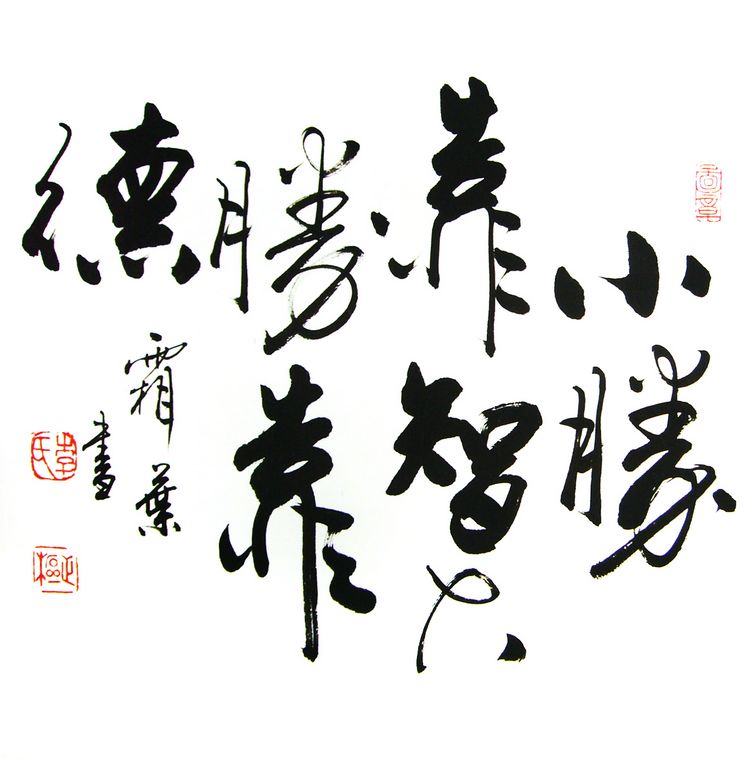 小勝
靠智大
勝靠
德
霜葉
書
李氏